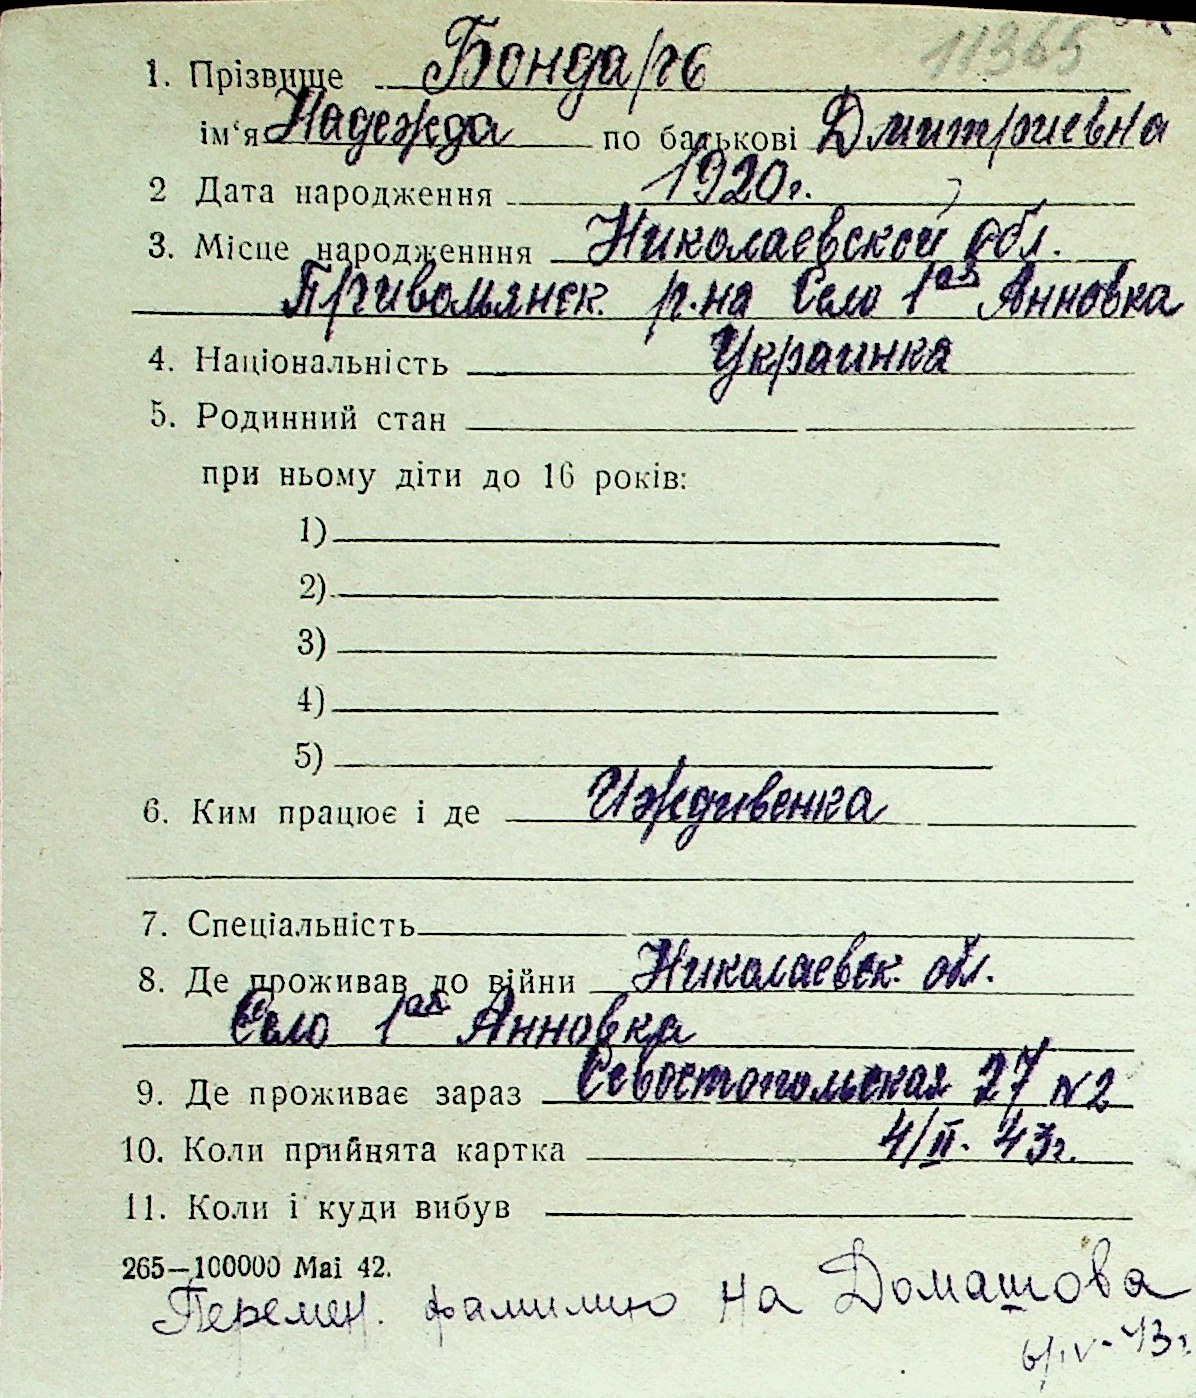 11365
1. Прізвище Бондарь
ім'я Надежда по батькові Дмитриевна
2 Дата народження 1920г.
3. Місце народженння Николаевской обл.
Привольянск. р.на Село 1ая Анновка
4. Національність Украинка
5. Родинний стан
при ньому діти до 16 років:
1)
2)
3)
4)
5)
6. Ким працює і де Иждивенка
7. Спеціальність
8. Де проживав до війни Николаевск. обл.
Село 1ая Анновка
9. Де проживає зараз Севостопольская 27 N2
10. Коли прийнята картка 4/II. 43г.
11. Коли і куди вибув
265—100000 Mai 42.
Перемен. фамилию на Домашова
6/IV-43г.